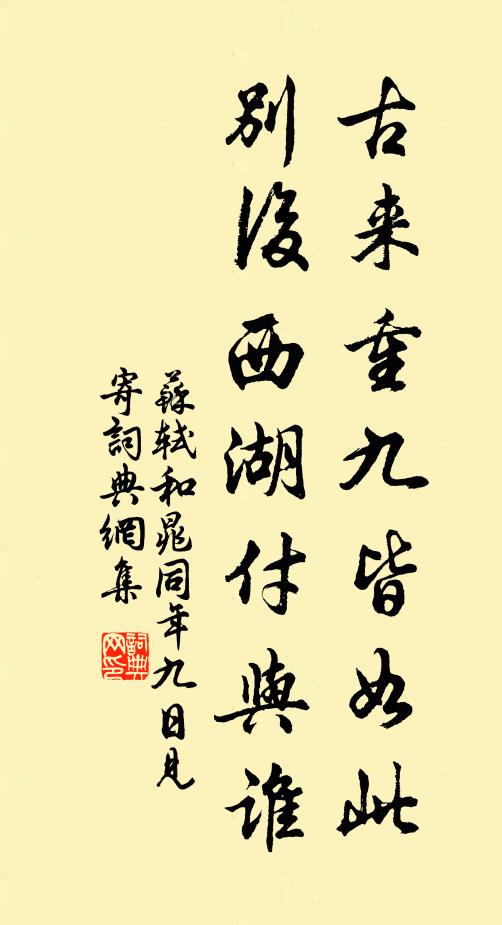 古来重九皆如此
別後西湖付與誰
蘇軾和晁同年九日見
寄詞典網集
詞典網印